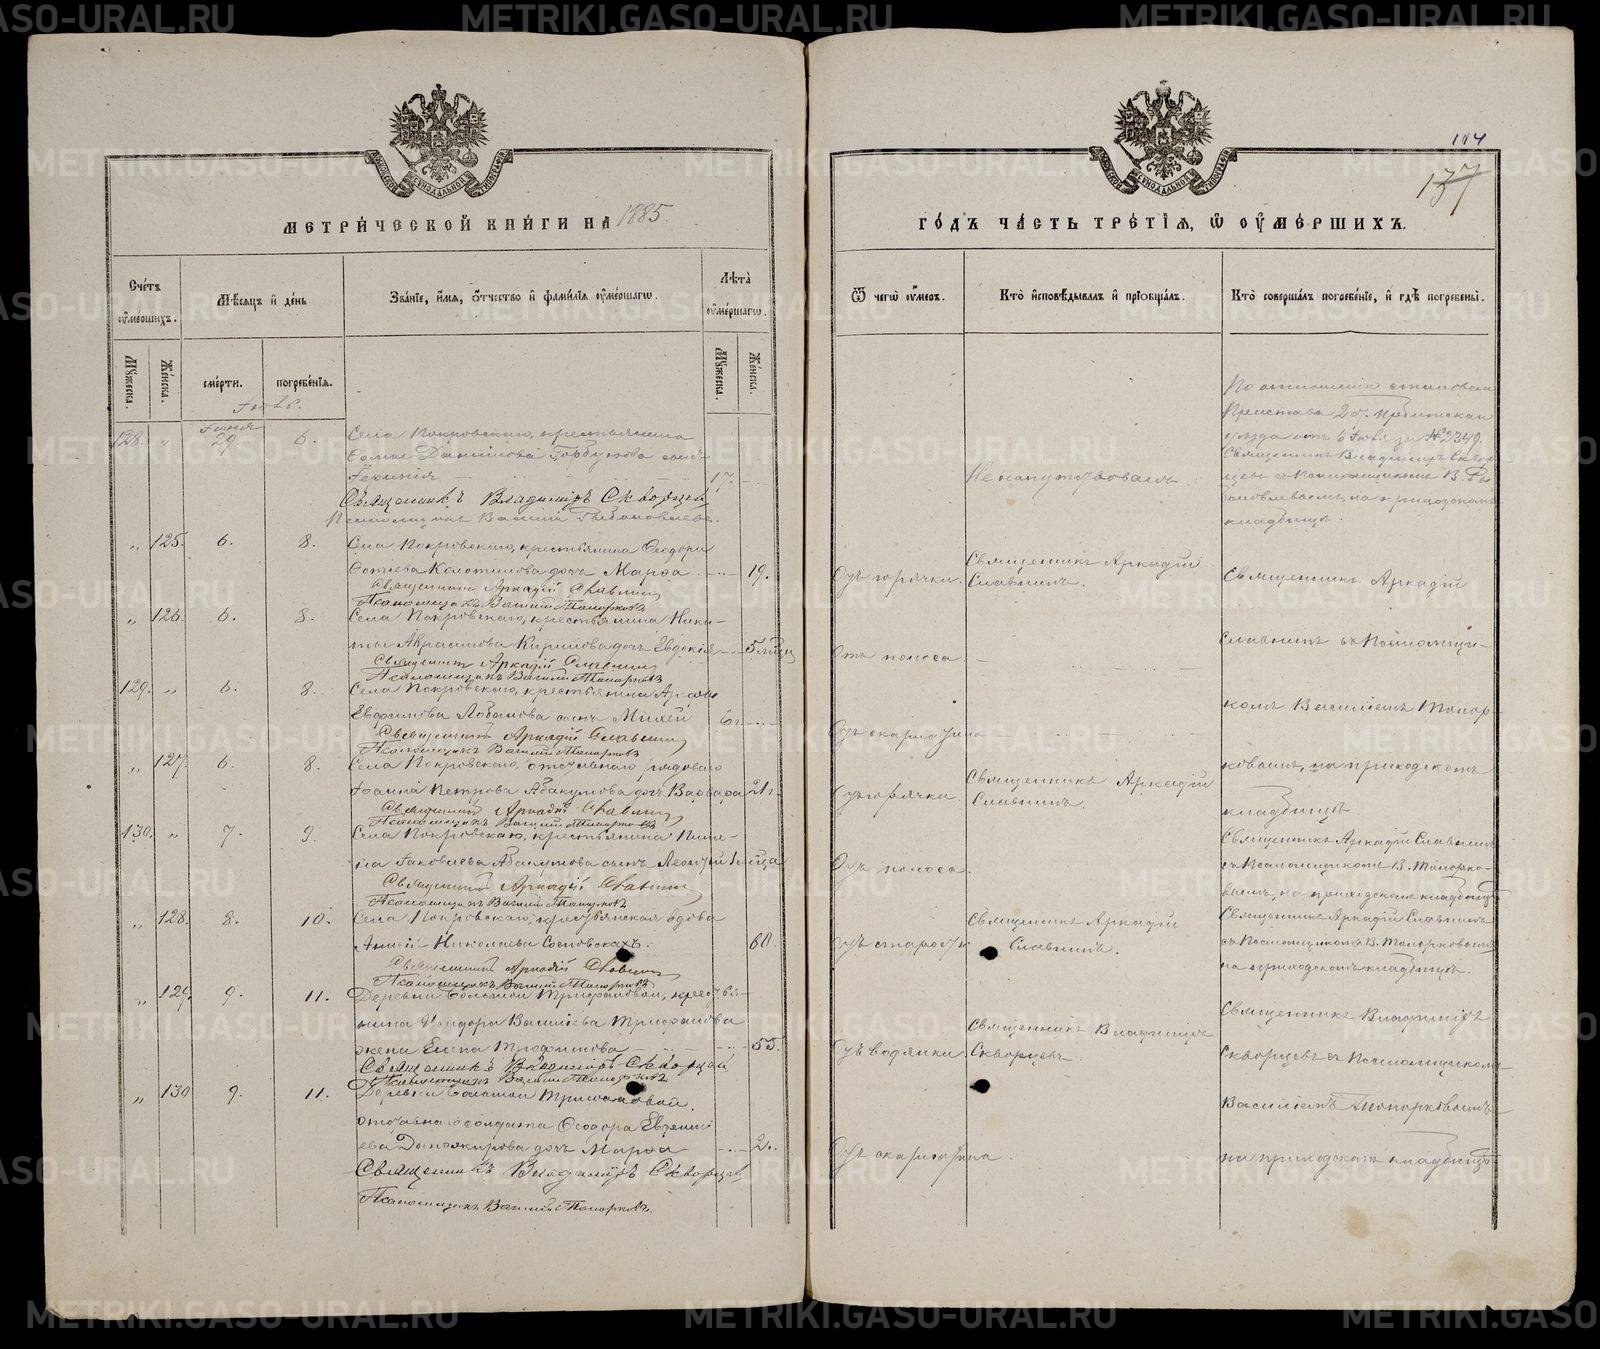 МЕТРИ́ЧЕСКОЙ КНИ́ГИ НА 1885.
Сче́тъ ᲂу҆ме́ршихъ.
Мѣ́сяцъ и҆ де́нь
Зва́нїе, и҆́мя, ѻ҆́тчество и҆ фами́лїя ᲂу҆ме́ршагѡ.
Лѣ́та ᲂу҆ме́ршагѡ.
Мꙋ́жеска.
Же́нска.
сме́рти.
погребе́нїя.
Мꙋ́жеска.
Же́нска.
Іюль.
128. „ Іюня 29 6. Села Покровскаго, крестьянина
Данилова Горбунова сынъ
17.
Священникъ Владиміръ Скворцевъ
„ 125. 6. 8. Села Покровскаго, крестьянина Ѳеодора
Колотилова дочь Марѳа 19.
Священникъ Аркадій Славнинъ
Псаломщикъ Василій Топорковъ
„ 126. 6. 8. Села Покровскаго, крестьянина Ники-
ты Кирилова дочь Евдокія 5 мѣц
Священникъ Аркадій Славнинъ
Псаломщикъ Василій Топорковъ
129. „ 6. 8. Села Покровскаго, крестьянина
Лобанова сынъ Михей 6 г
Священникъ Аркадій Славнинъ
Псаломщикъ Василій Топорковъ
„ 127. 6. 8. Села Покровскаго, отставнаго рядоваго
Іоанна Петрова Абакумова дочь Варвара 2 г.
Священникъ Аркадій Славнинъ
Псаломщикъ Василій Топорковъ
130. „ 7. 9. Села Покровскаго, крестьянина
Іаковлева Абакумова сынъ
Священникъ Аркадій Славнинъ
Псаломщикъ Василій Топорковъ
„ 128. 8. 10. Села Покровскаго, крестьянская вдова
Николаева Сосновскахъ. 60.
Священникъ Аркадій Славнинъ
Псаломщикъ Василій Топорковъ
„ 129. 9. 11. Деревни Большой Трифановой, кресть-
янина Василіева Трифанова
жена Елена Трофимова 55.
Священникъ Владиміръ Скворцевъ
Псаломщикъ Василій Топорковъ
„ 130 9. 11. Деревни Большой Трифановой,
отставнаго солдата Ѳеодора
дочь Марѳа 2.
Священникъ Владиміръ Скворцевъ
Псаломщикъ Василій Топорковъ.
137
ГО́ДЪ ЧА́СТЬ ТРЕ́ТЇЯ, Ѡ҆ ᲂУ҆МЕ́РШИХЪ.
Ѿ чегѡ̀ ᲂу҆́меръ.
Кто̀ и҆сповѣ́дывалъ и҆ прїобща́лъ.
Кто̀ соверша́лъ погребе́нїе, и҆ гдѣ̀ погребены̀.
По отношенію становаго
Пристава 2 ст. Ирбитскаго
уѣзда отъ 6 Іюля за № 2349.
Священникъ Владиміръ Сквор-
цевъ съ Псаломщикомъ В.
на приходскомъ
кладбищѣ.
Не напутствованъ.
Отъ горячки. Священникъ Аркадій
Славнинъ.
Священникъ Аркадій
Отъ поноса.
Славнинъ съ Псаломщи-
Отъ скарлатина
комъ Василіемъ Топор-
Отъ горячки Священникъ Аркадій
Славнинъ.
ковымъ, на приходскомъ
кладбищѣ
Отъ поноса.
Священникъ Аркадій Славнинъ
съ Псаломщикомъ В. Топорко-
вымъ, на приходскомъ кладбищѣ
Отъ старости Священникъ Аркадій
Славнинъ.
Священникъ Аркадій Славнинъ
съ Псаломщикомъ В. Топорковымъ
на приходскомъ кладбищѣ.
Отъ водянки. Священникъ Владиміръ
Скворцевъ.
Священникъ Владиміръ
Скворцевъ съ Псаломщикомъ
Василіемъ Топорковымъ
Отъ скарлатина.
на приходскомъ кладбищѣ
METRIKI.GASO-URAL.RU